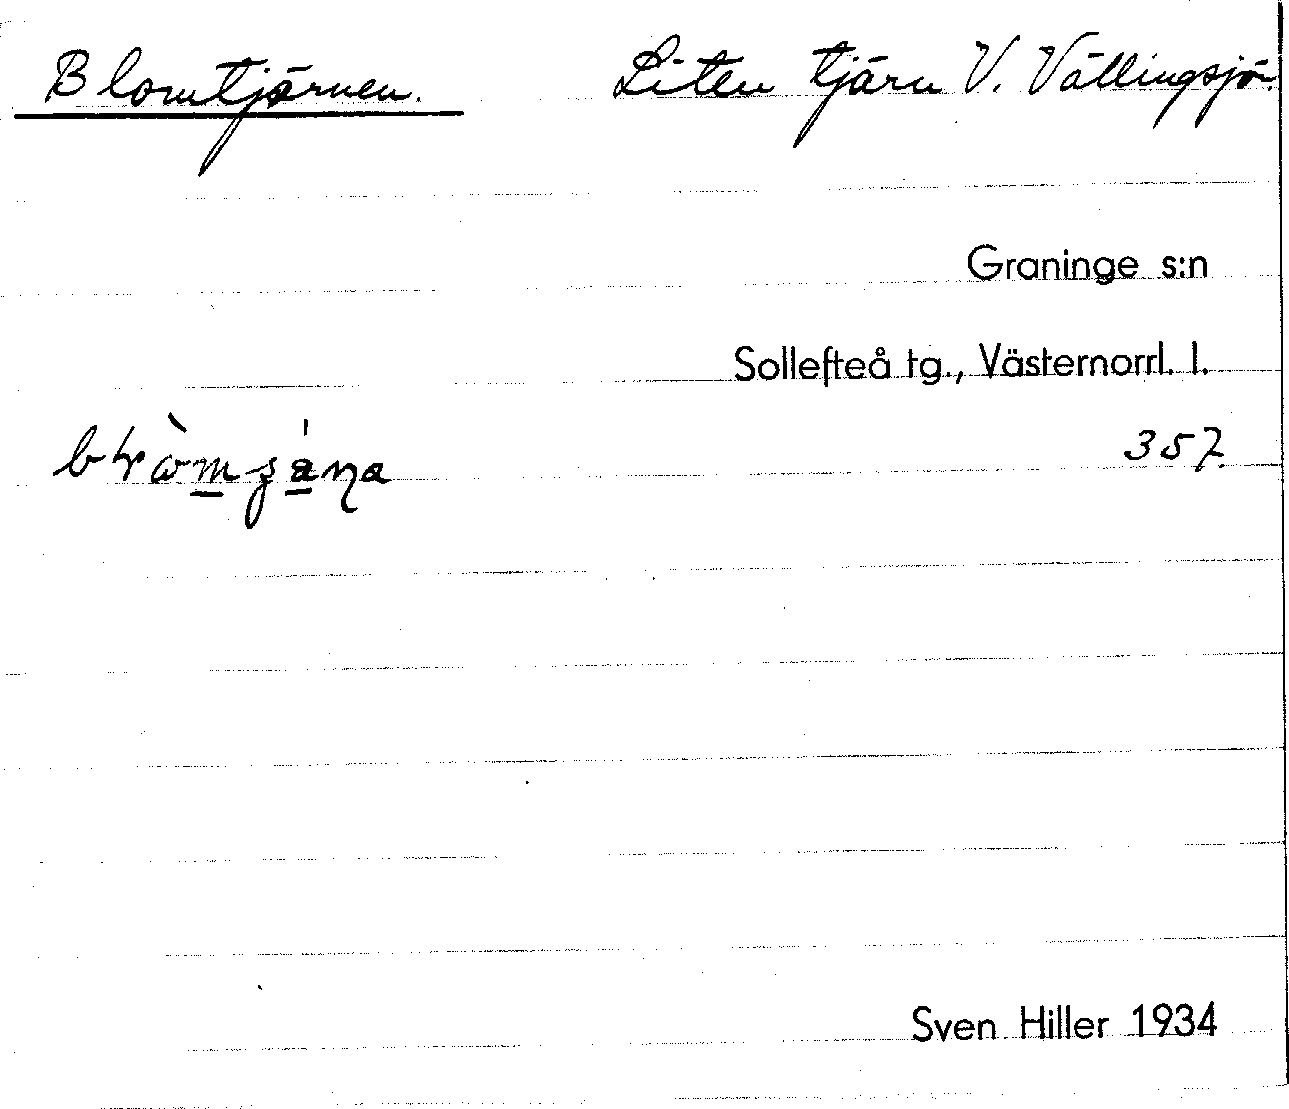 Blomtjärnen. Liten tjärn V. Vällingsjön.
Graninge s:n
Sollefteå tg., Västernorrl. l.
357.
Sven Hiller 1934